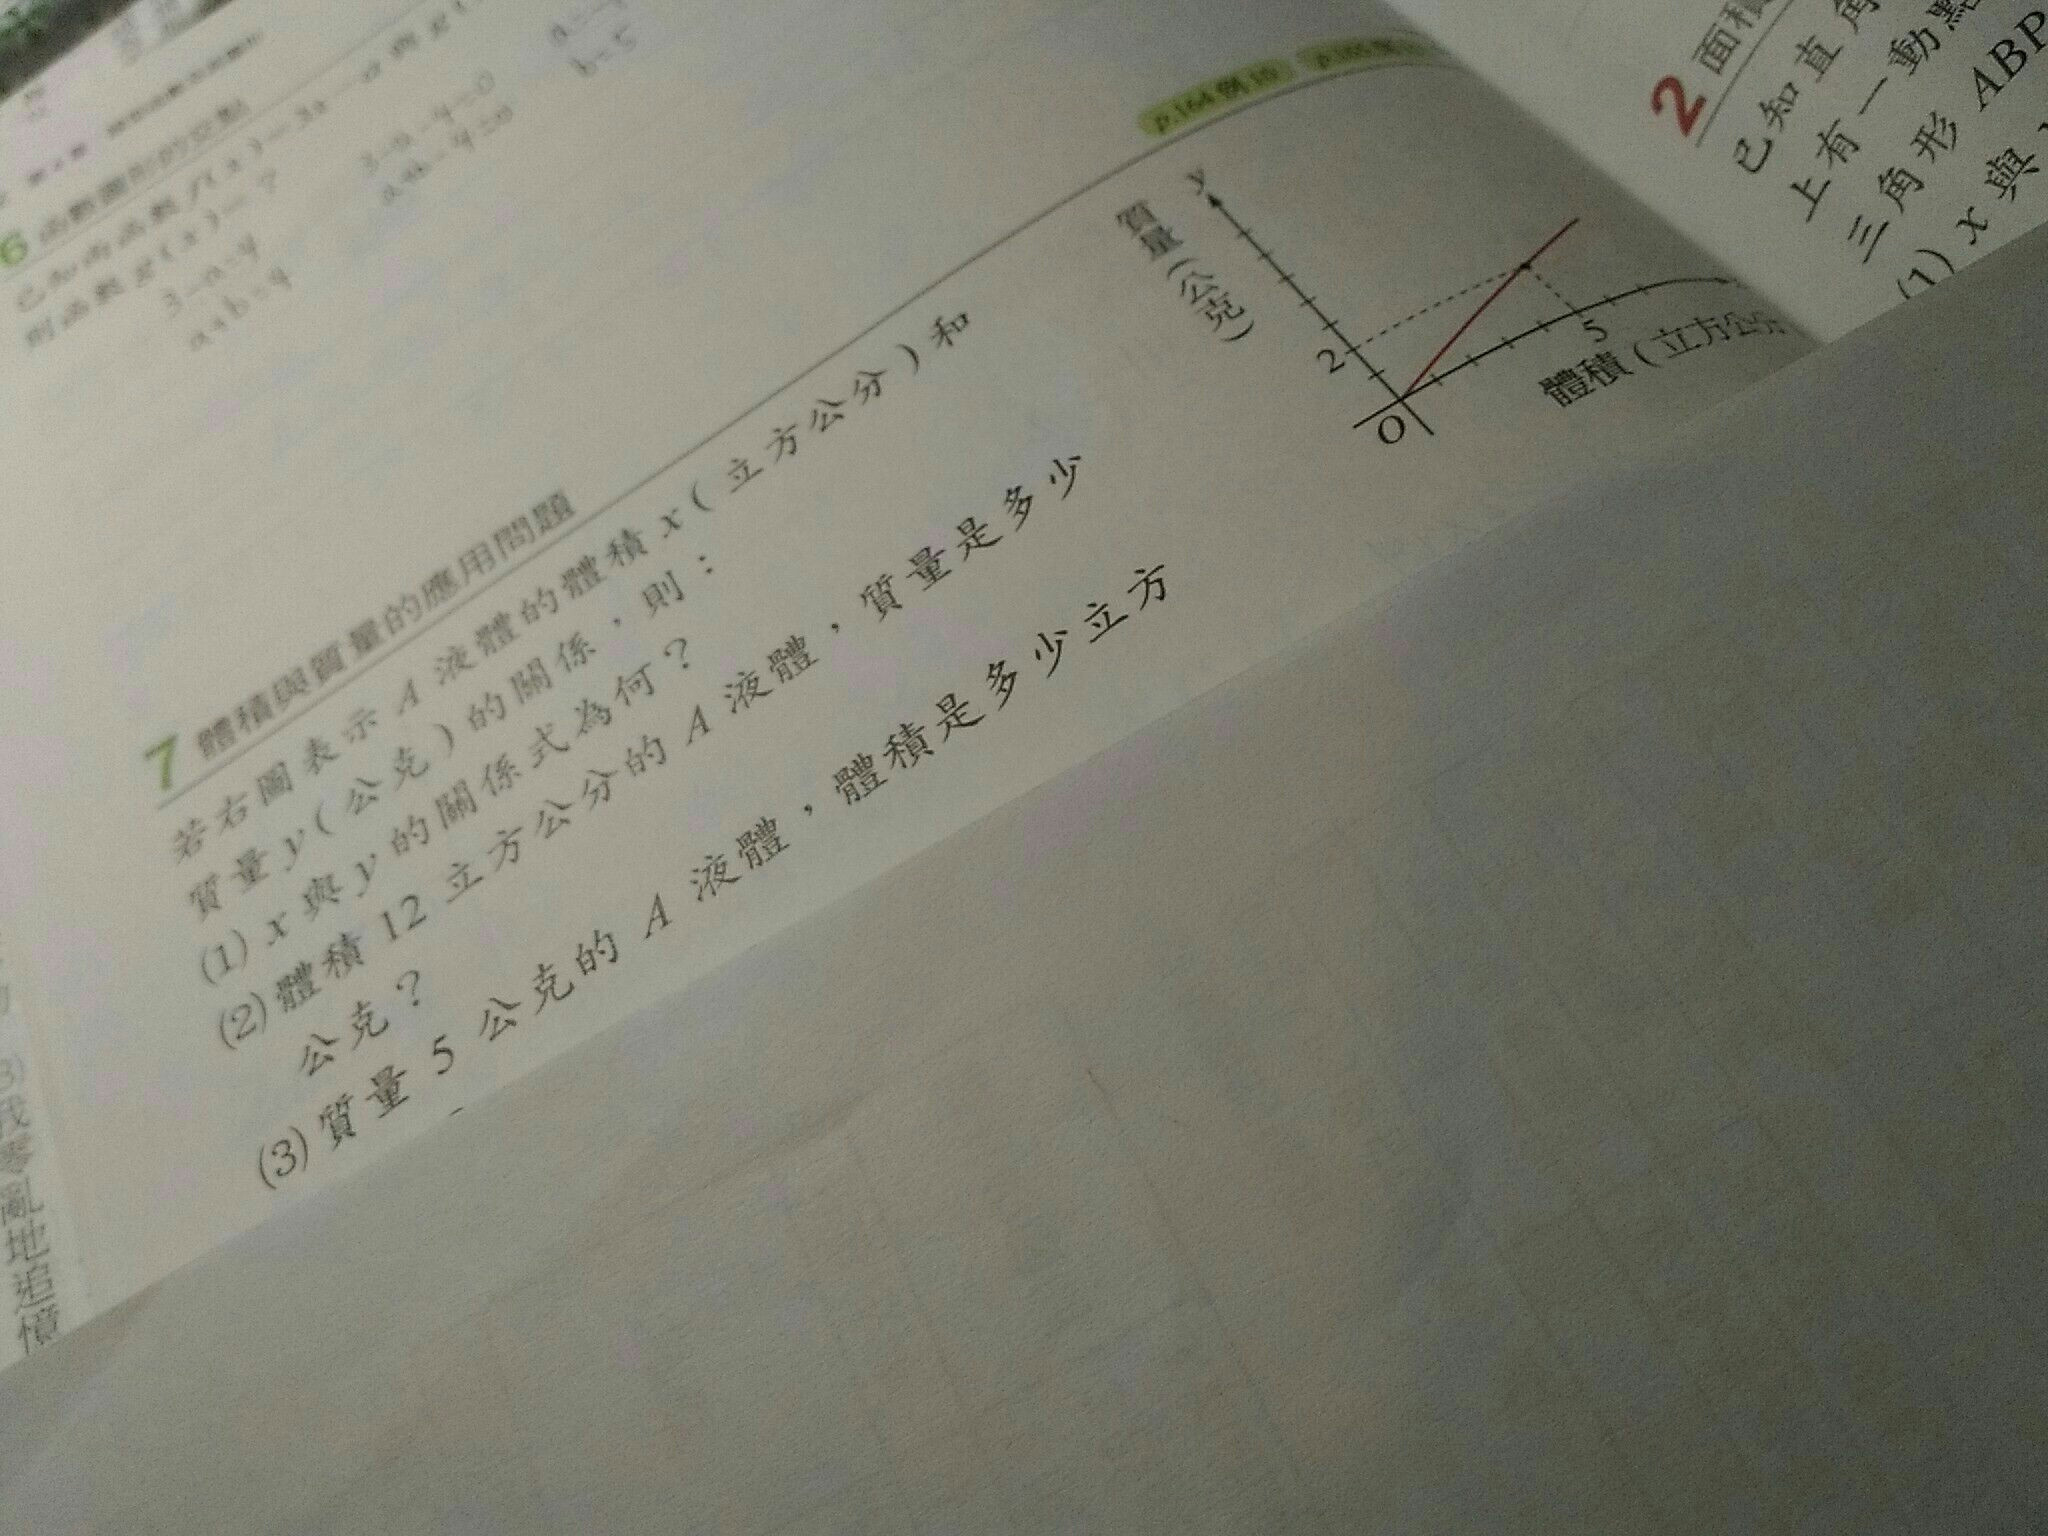 6 函數圖形的交點
已知兩函數 f(x)=3x-a 與 g(
則函數 g(x)=?
3-a=4
a+b=9
3-a-4=0
b=5
p.164 例 10
7 體積與質量的應用問題
若右圖表示 A 液體的體積 x(立方公分)和
質量 y(公克)的關係,則:
(1) x 與 y 的關係式為何?
(2) 體積 12 立方公分的 A 液體,質量是多少
公克?
(3) 質量 5 公克的 A 液體,體積是多少立方
y
質量(公克)
2
O
5
體積(立方公分
2 面積
已知直角
上有一動點
三角形 ABP
(1) x 與 y
3)
我
零
亂
地
追
憶